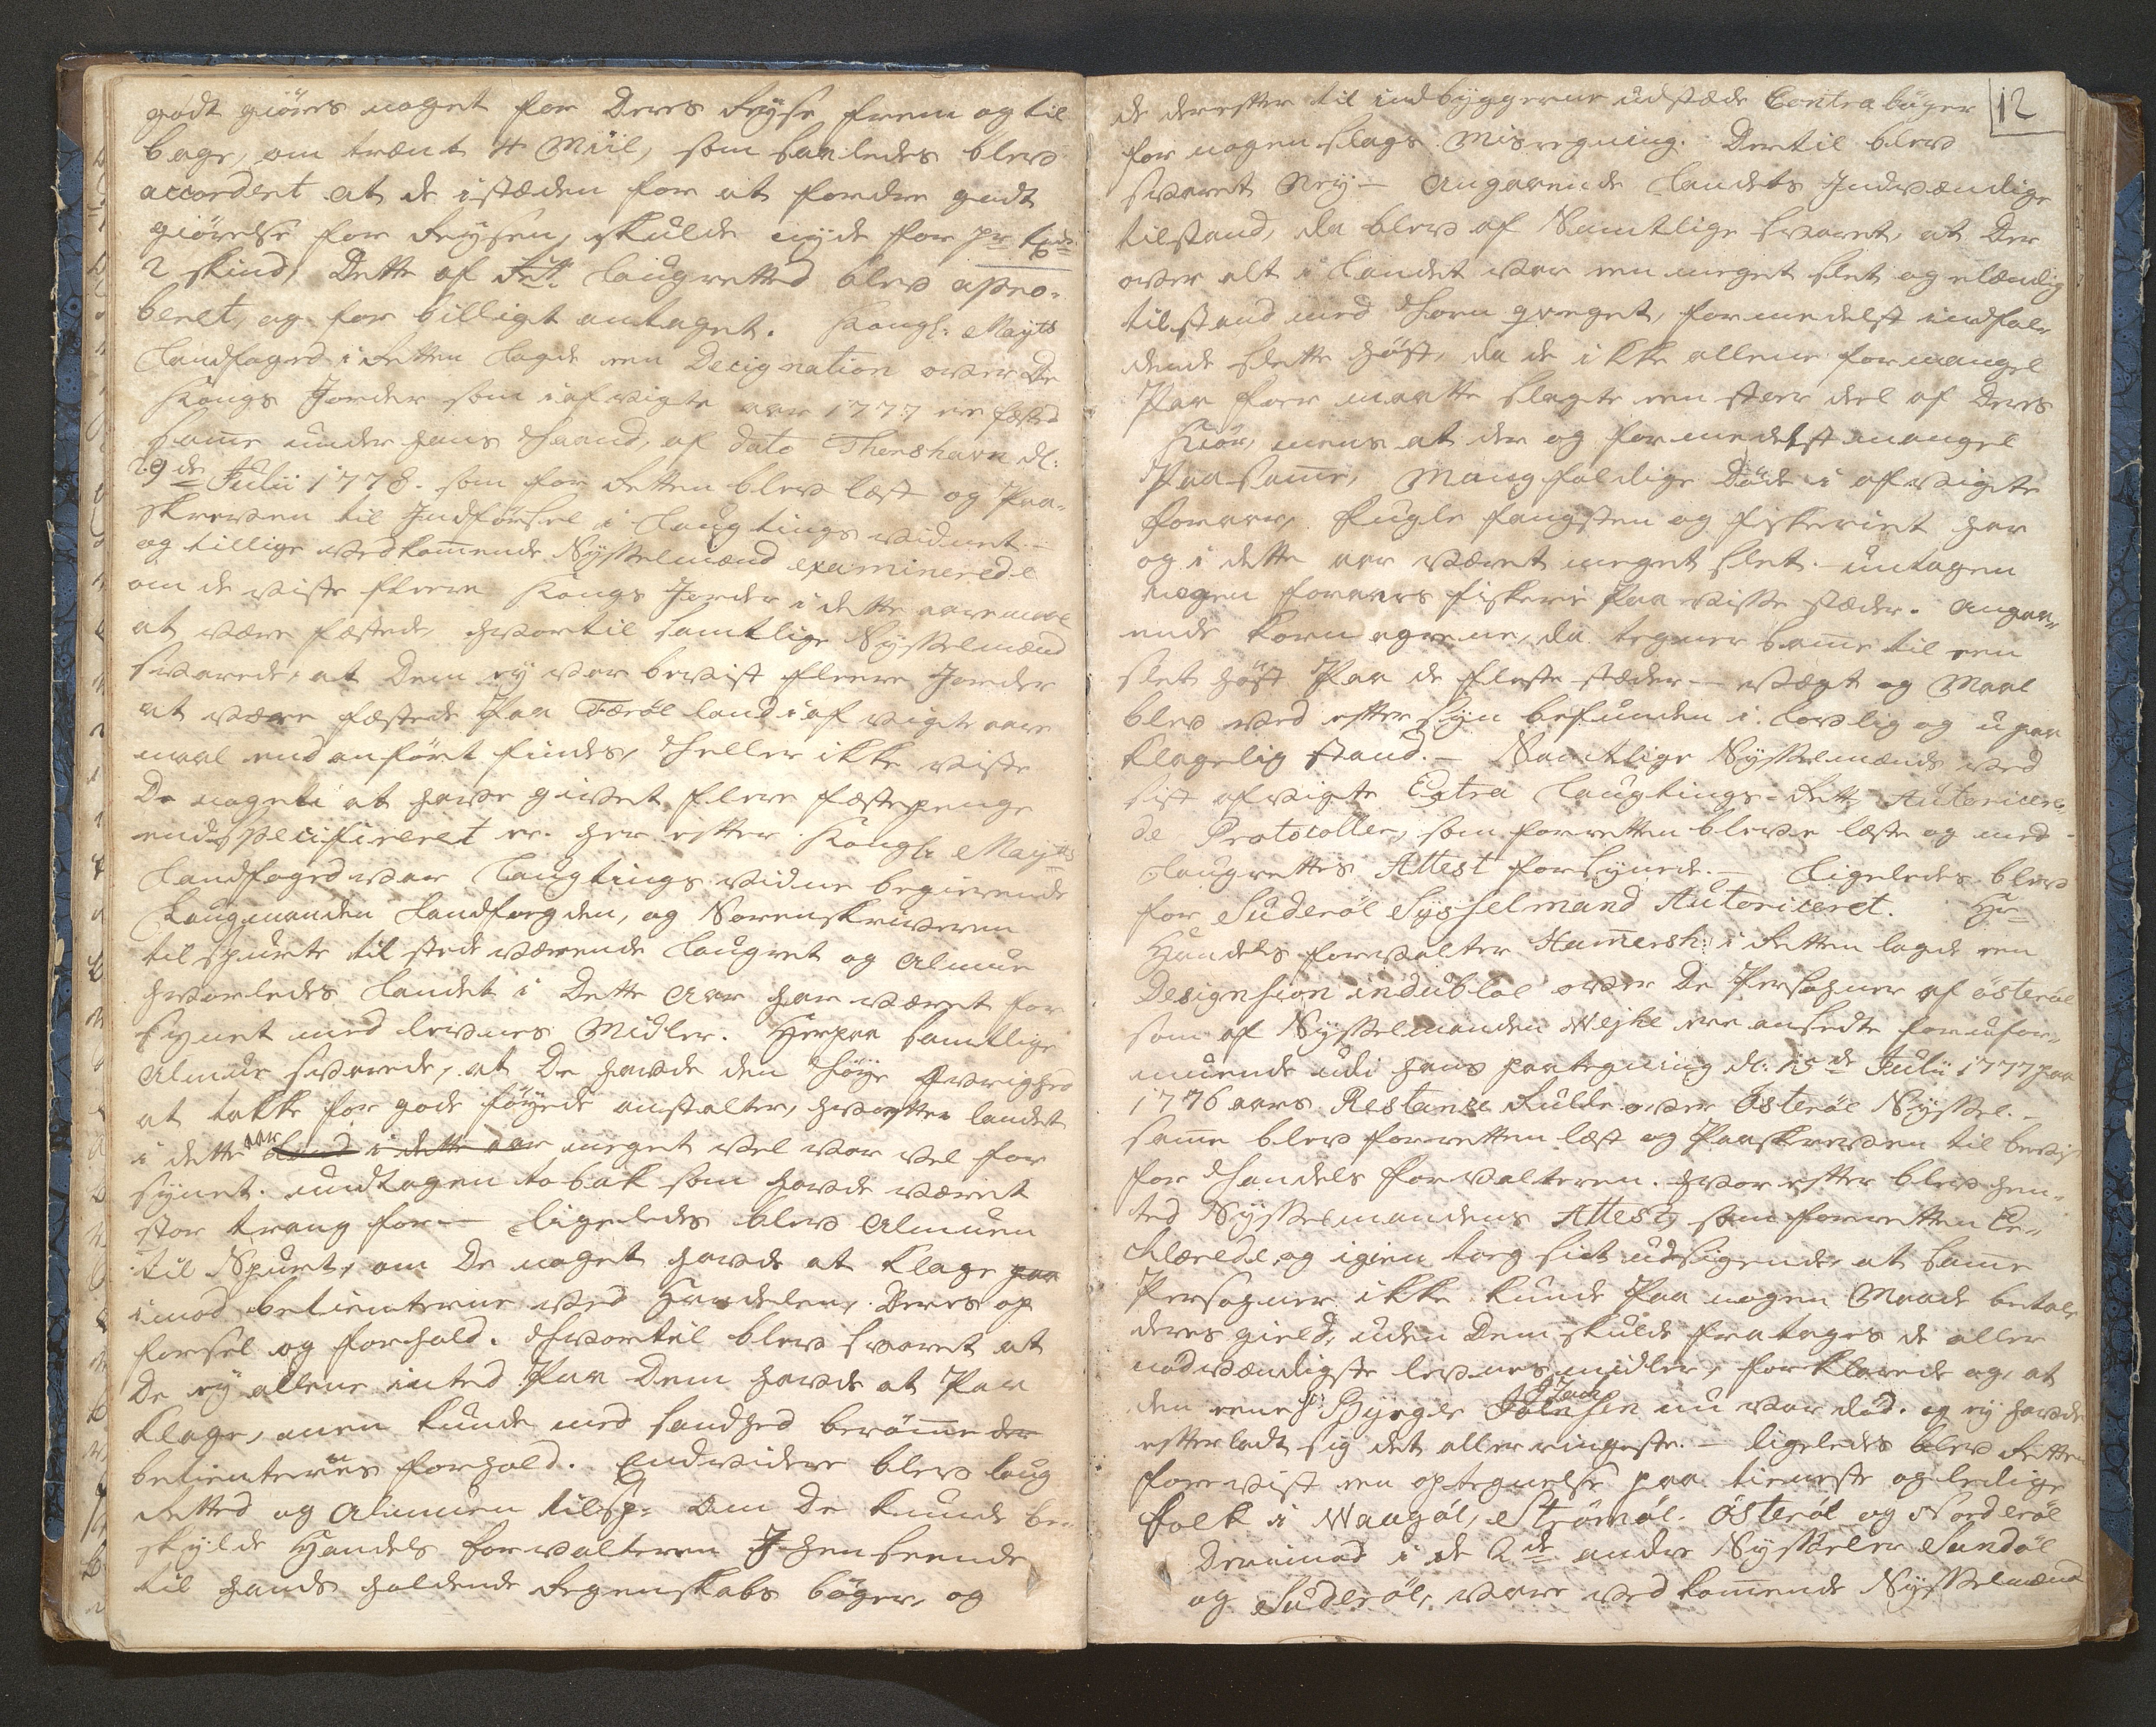 godt giöres noget for Deres Reyse frem og til
bage, om trænt 4 Miil, som saaledes blev
accorderet at de istæden for at fordre godt
giörelse for Reysen, skulde nyde for pr
2 skind, Dette af Laugretted blev appro-
beret, og for billigt antaget. Kongl: Mayts
Landfoged i Retten lagde een Decignation over De
Kongs Jorder som i afvigte aar 1777 ere fæsted
samme under hans Haand, af dato Thorshavn d:
29de Julii 1778. som for Retten blev læst og Paa-
skreven til Indförsel i Laugtings vidnet -
og tillige vedkommende Sysselmænd examinerede
om de viste fleere Kongs Jorder i dette aaremaal
at være fæstede, hvortil samtlige Sysselmænd
svarede, at Dem ey var bevist fleere Jorder
at være fæstede Paa Færöe land i afvigte aare
maal end anfört findes, Heller ikke viste
De noget at have givet flere fæstepenge
end Specificeret er. her efter Kongl: Mayts
Landfoged var Laugtings vidne begierende
Laugmanden Landfogden, og Sorenskriveren
tilspurte til stede værende Laugret og Almue
hvorledes Landet i Dette Aar har været for
synet med levnes Midler. Herpaa samtlige
Almue svarede, at De havde den Höye Övrighed
at takke for gode föyede anstalter, hvorefter landet
i dette aar land i dette aar meget vel var vel for
synet. undtagen tobak som havde været
stor trang for - ligeledes blev Almuen
til Spurt, om De noget havde at klage paa
imod betienterne ved Handelen, Deres op
försel og forhold. Hvortil blev svaret at
De ey allene inted Paa Dem havde at Paa
klage, men kunde med sandhed berömme der
betienternes forhold. Endvidere blev laug
Retted og Almuen tilsp: Om De kunde be-
skylde Handels forvalteren J henseende
til hands holdende Regenskabs böger, og
12
de derefter til indbyggerne udstæde Contra böger
for nogen slags Misregning. Dertil blev
svaret Ney - Angaaende Landets Indvændige
tilstand, da blev af Samtlige svaret, at Der
over alt i Landet var een meget slet og elændig
tilstand med Horn qvæget, formedelst indfal-
dende slette höst, da de ikke allene formangel
Paa foer maatte slagte een stoer deel af Deres
Kiör, mens at der og formedelst mangel
Paa samme, Mangfoldige Döde i afvigte
foraar, fugle fangsten og fiskeriet har
og i dette aar været meget slet. - untagen
nogen foraars fiskeri Paa visse stæder. Angaa-
ende korn agrene, da tegner samme til een
slet höst Paa de fleste stæder - Vægt og Maal
blev ved efter syn befunden i lovlig og u paa
klagelig stand. - Samtlige Sysselmænds ved
sist afvigte Extra Laugtings-Rett Autoricere-
de Protocoller, som for retten bleve læste og med
Laugrettes Attest forsynede. - Ligeledes blev
for Suderöe Sysselmand Autoriceret. Hr
Handels forvalter Hamersh: i Retten lagde een
Designsion in dubloe over De Persohner af österöe
som af Sysselmanden Wejhe ere ansedte for ufor-
muende udi hans paategning d: 15de Julii 1777 paa
1776 aars Restance Rulle over Österöe Syssel. -
samme blev for retten læst og Paaskreven til bevis
for Handels Forvalteren. hvorefter blev hen-
ted Sysselmandens Attest, som for retten De-
clarede, og igien tog sit udsigende, at samme
Persohner ikke kunde Paa nogen Maade betale
deres gield, uden Dem skulde fratages de aller
nødvændigste levnes midler, forklarede og, at
den eene Byrge Joensen nu var död. og ey havde
efterladt sig det aller ringeste. - ligeledes blev Retten
forevist een optegnelse paa tieneste og ledige
folk i Waagöe, Strömöe. Österöe og Norderöe
Derimod i de 2de andre Sysseler Sandöe
og Suderöe, vare vedkommende Sysselmænd